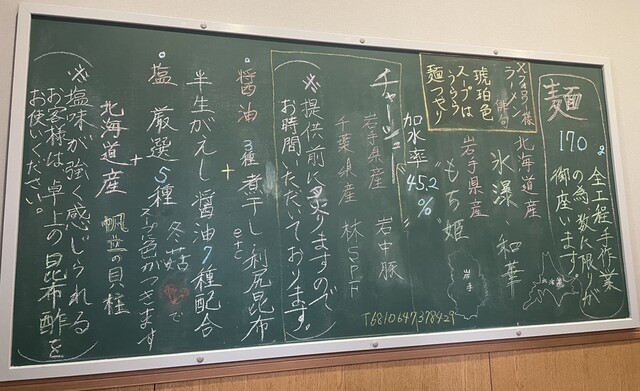 麺
170g
全工程手作業
の為数に限りが
御座います。
北海道産
氷瀑・和華
岩手県産
"もち姫"
加水率
"45.2%"
岩手
ラーメン俳句
琥珀色
スープは
うららう
麺つやり
チャーシュー
岩手県産 岩中豚
千葉県産 林SPF
T6810647378429
※提供前に
ますので
お時間いただいております。
醤油 3種煮干し利尻昆布
+ etc
半生がえし 醤油7種配合
塩 厳選5種 冬菇 で
+ スープ色がつきます
北海道産 帆立の貝柱
※塩味が強く感じられる
お客様は、卓上の昆布酢を
お使いください。